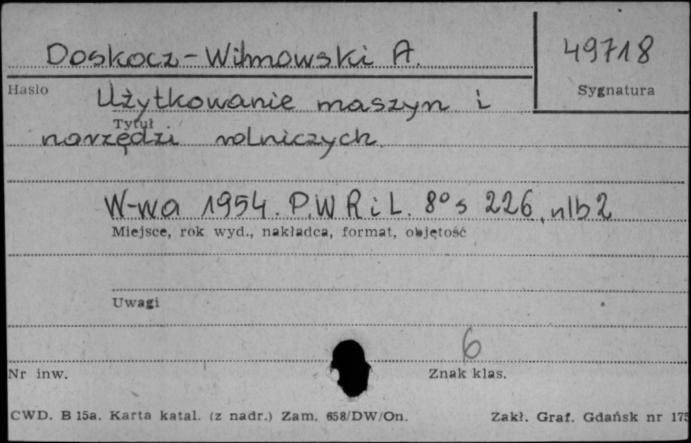 Doskocz-Wilmowski A.
49718
Hasło
Sygnatura
Użytkowanie maszyn i
Tytuł
narzędzi rolniczych
W-wa 1954. P.W R i L. 8° s 226, nlb 2
Miejsce, rok wyd., nakładca, format, objętość
Uwagi
6
Nr inw.
Znak klas.
CWD. B 15a. Karta katal. (z nadr.) Zam. 658/DW/On.
Zakł. Graf. Gdańsk nr 175